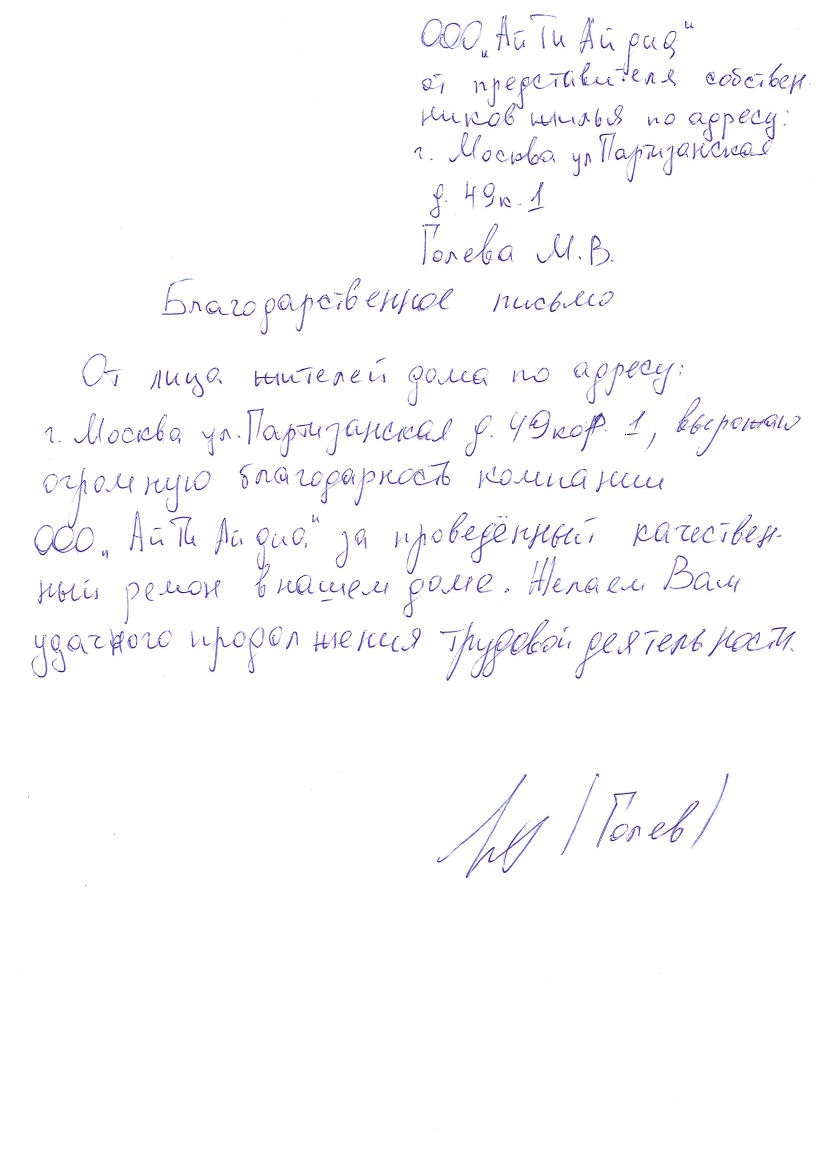 ООО „АйТи Айдиа"
от представителя собствен-
ников жилья по адресу:
г. Москва ул Партизанская
д. 49к. 1
Голева М. В.
Благодарственное письмо
От лица жителей дома по адресу:
г. Москва ул. Партизанская д. 49 кор. 1, выражаю
огромную благодарность компании
ООО „АйТи Айдиа" за проведённый качествен-
ный ремон в нашем доме. Желаем Вам
удачного продолжения трудовой деятельности.
/Голев/